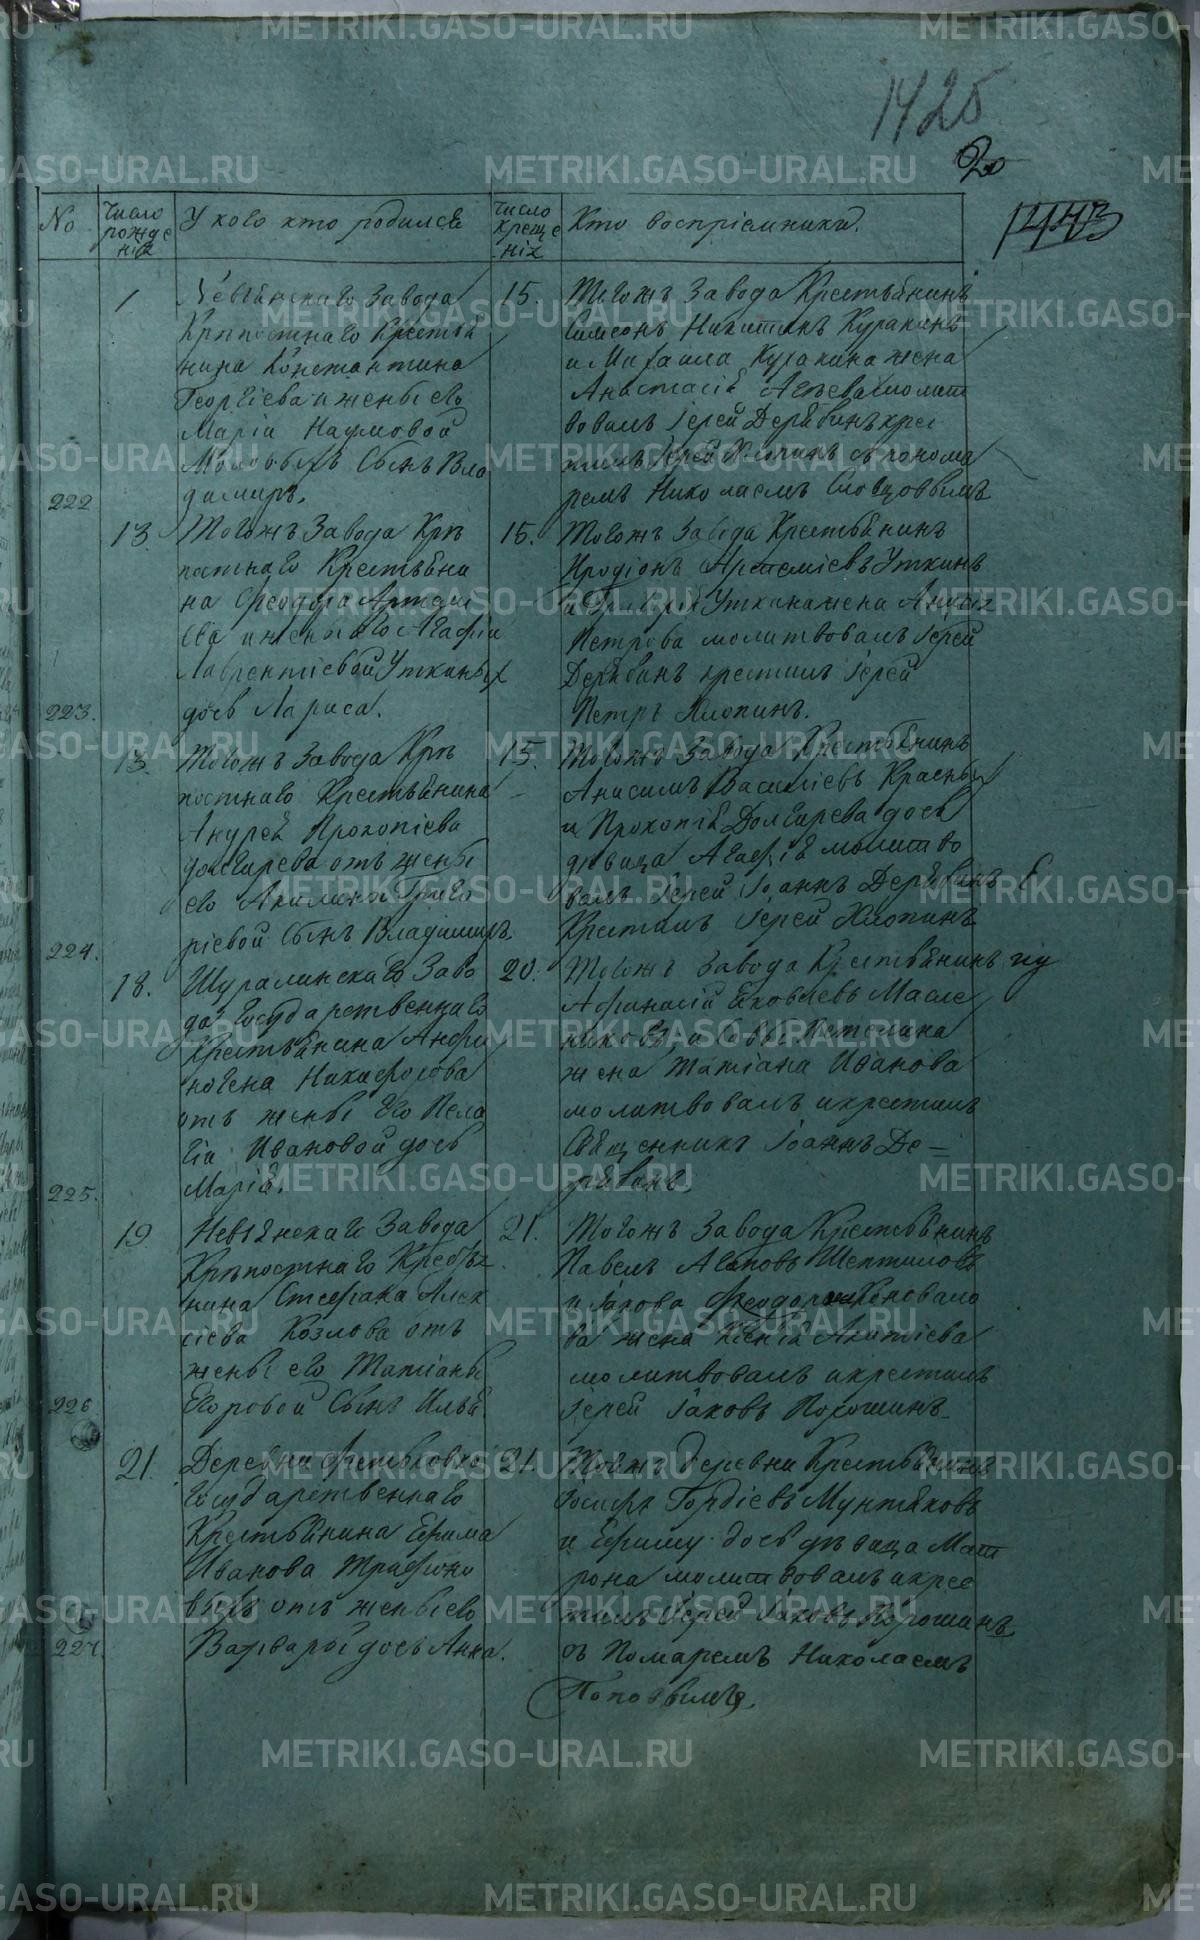 1425
20
1443
No
Число рожденія
У кого кто родился
Число крещенія
Кто воспріемники.
222
1
Невьянскаго Завода
Крѣпостнаго Крестья
нина Константина
Георгіева и жены его
Маріи Наумовой
Сынъ Вла
димиръ.
15.
Тогожъ Завода Крестьянинъ
Симеонъ Никитинъ Куракинъ
и Михаила Куракина жена
Анастасія молит
вовалъ Іерей Дерябинъ крес
тилъ Іерей Хлопинъ съ понома
ремъ Николаемъ Словцовымъ
223.
13.
Тогожъ Завода Крѣ
постнаго Крестьяни
на Феодора Артемі
ева и жены его Агафіи
Лаврентіевой Уткиныхъ
дочь Лариса.
15.
Тогожъ Завода Крестьянинъ
Иродіонъ Артеміевъ Уткинъ
и Уткина жена
Петрова молитвовалъ Іерей
Дерябинъ крестилъ Іерей
Петръ Хлопинъ.
224.
13.
Тогожъ Завода Крѣ
постнаго Крестьянина
Андрея Прокопіева
Долгирева отъ жены
его Акилины Григо
ріевой Сынъ Владимиръ.
15.
Тогожъ Завода Крестьянинъ
Анисимъ Василіевъ Красных
и Прокопія Долгирева дочь
дѣвица Агафія молитво
валъ Іерей Іоаннъ Дерябинъ
Крестилъ Іерей Хлопинъ
225.
18.
Шуралинскаго Заво
да Государственнаго
Крестьянина Анфи
ногена Никифорова
отъ жены Его Пела
гіи Ивановой дочь
Марія.
20.
Тогожъ Завода Крестьянинъ
Афанасій Яковлевъ Масле
никовъ, и Савы
жена Татіана Иванова
молитвовалъ и крестилъ
Священникъ Іоаннъ Де=
рябинъ.
226
19
Невьянскаго Завода
Крѣпостнаго Кресть
нина Стефана Алек
сіева Козлова отъ
жены его Татіаны
Егоровой Сынъ Илья.
21.
Тогожъ Завода Крестьянинъ
Павелъ Шептиловъ
и Іакова Феодорова Коновало
ва жена Ксенія
молитвовалъ и крестилъ
Іерей Іаковъ Порошинъ
227.
21.
Деревни
Государственнаго
Крестьянина Ефима
Иванова Трифоно
выхъ отъ жены его
Варвары дочь Анна.
21.
Тоежъ деревни Крестьянинъ
Іосифъ Гордіевъ
и Ефиму дочь дѣвица Мат
рона молитвовалъ и крес
тилъ Іерей Іаковъ Порошинъ
съ Помаремъ Николаемъ
Поповымъ.
METRIKI.GASO-URAL.RU